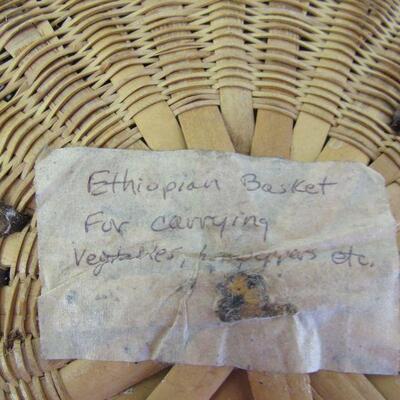 Ethiopian Basket
For carrying
Vegtables, peppers etc.